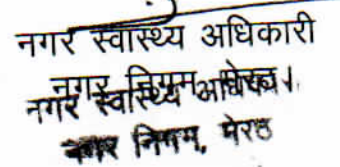 नगर स्वास्थ्य अधिकारी
नगर निगम, मेरठ
नगर स्वास्थ्य अधिकारी
नगर निगम, मेरठ